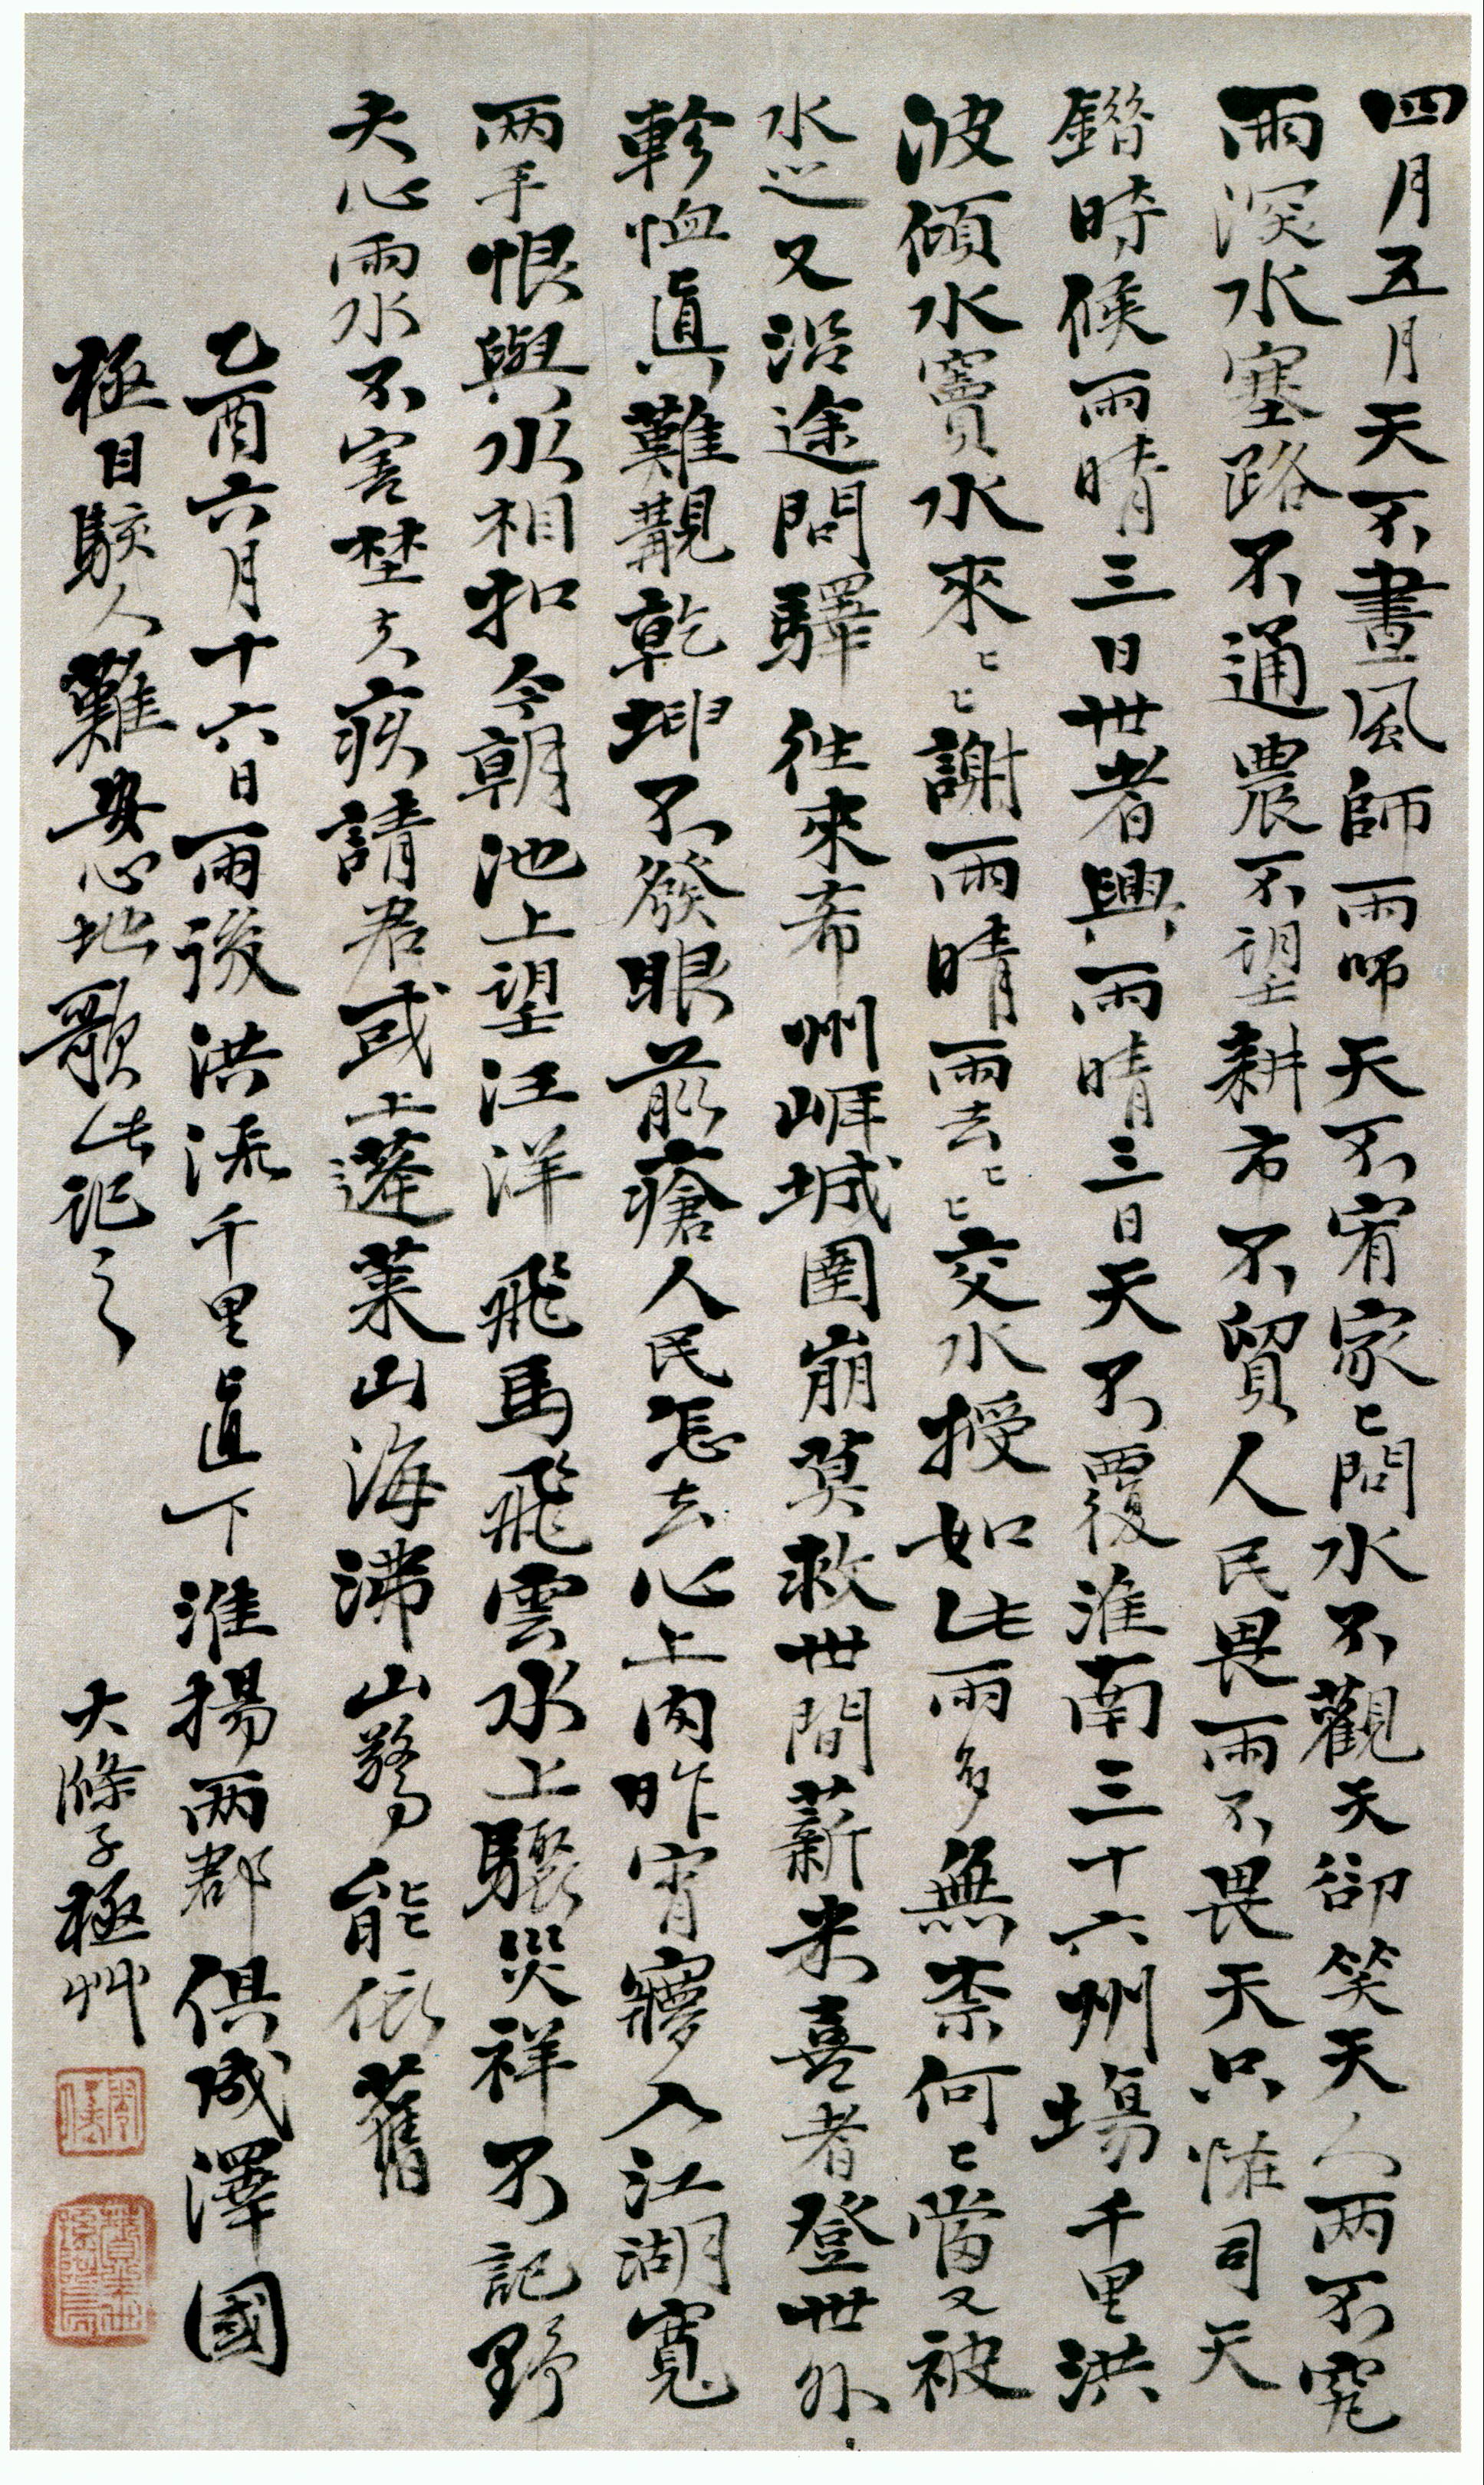 四月五月天不晝風師雨師天不宥家〻問水不觀天卻笑天人兩不究
雨深水塞路不通農不望耕市不貿人民畏雨不畏天只恠司天
錯時候雨晴三日世者興雨晴三日天不覆淮南三十六州場千里洪
波傾水竇水來〻〻謝雨晴雨去〻〻交水授如此雨多無柰何〻當又被
水
又沿途問驛徃來希州崕城圉崩莫救世間薪米喜者登世外
軫恤真難覯乾坤不發眼前瘡人民怎去心上肉昨宵寢夢入江湖寬
兩手恨與水相扣今朝池上望汪洋飛馬飛雲水上驟災祥不記野
夫心雨水不害埜夫疾請君或上蓬萊山海沸山驚能依舊
乙酉六月十六日雨後洪流千里直下淮揚兩郡俱成澤國
極目駭人難安心地歌此記之
大滌子極艸